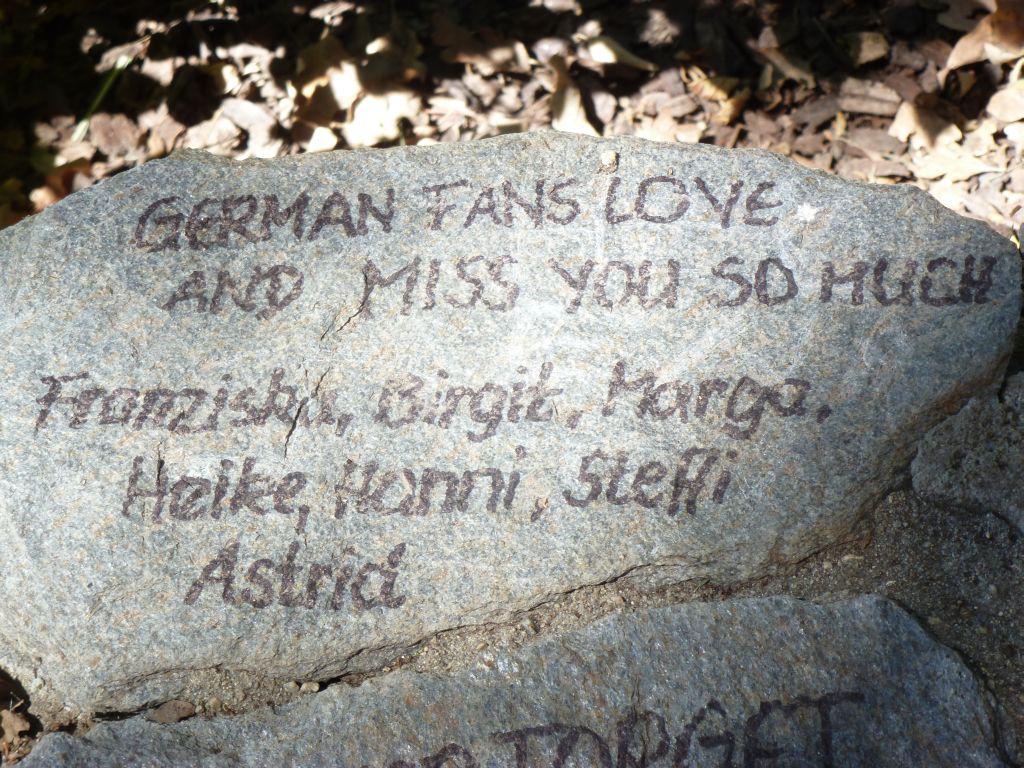 GERMAN FANS LOVE
AND MISS YOU SO MUCH
Franziska, Birgit, Marga,
Heike, Hanni, Steffi
Astrid
FORGET